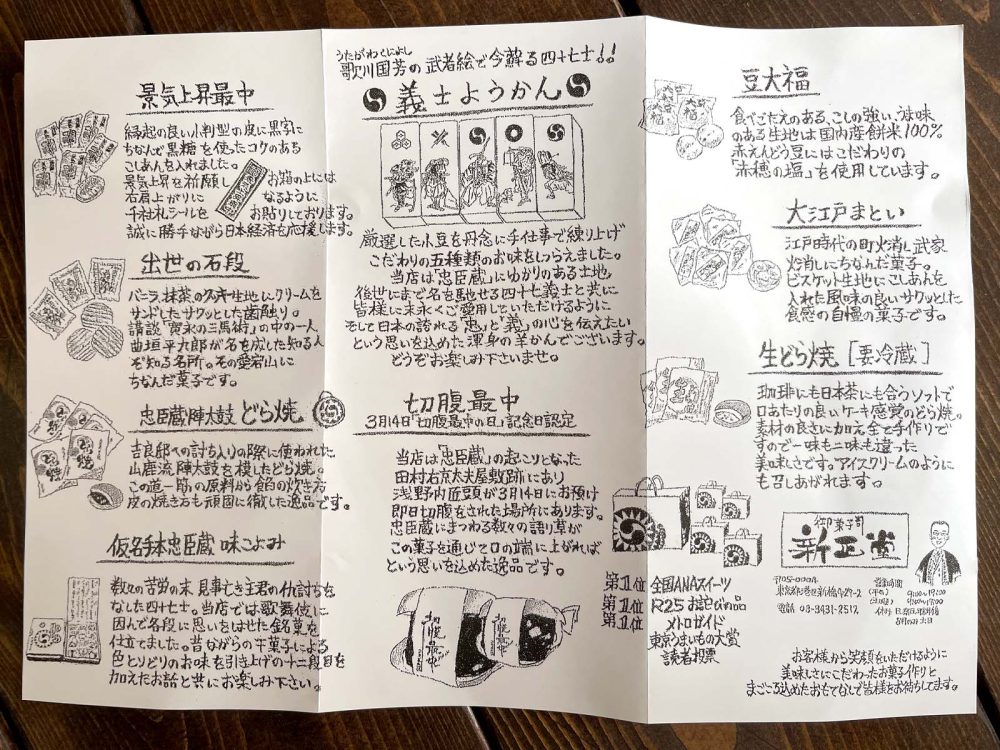 景気上昇最中
縁起の良い小判型の皮に黒字に
ちなんで黒糖を使ったコクのある
こしあんを入れました。
景気上昇を祈願し
右肩上がりに
千社札シールを
お箱の上には
なるように
お貼りしております。
誠に勝手ながら日本経済を応援します。
出世の石段
バニラ、抹茶のクッキー生地にクリームを
サンドしたサクッとした歯触り。
講談「寛永の三馬術」の中の一人
曲垣平九郎が名を成した知る人
ぞ知る名所。その愛宕山に
ちなんだ菓子です。
忠臣蔵陣太鼓 どら焼
吉良邸への討ち入りの際に使われた
山鹿流陣太鼓を模したどら焼。
この道一筋の原料から餡の炊き方
皮の焼き方も頑固に徹した逸品です。
仮名手本忠臣蔵 味ごよみ
数々の苦労の末、見事亡き主君の仇討ちを
なした四十七士。当店では歌舞伎に
因んで各段に思いをはせた銘菓を
仕立てました。昔ながらの干菓子による
色とりどりのお味を引き上げの十二段目を
加えたお話と共にお楽しみ下さい。
うたがわくによし
歌川国芳の武者絵で今蘇る四十七士!!
義士ようかん
厳選した小豆を丹念に手仕事で練り上げ
こだわりの五種類のお味をしつらえました。
当店は「忠臣蔵」にゆかりのある土地。
後世にまで名を馳せる四十七義士と共に
皆様に末永くご愛用していただけるように
そして日本の誇れる「忠」と「義」の心を伝えたい
という思いを込めた渾身の羊かんでございます。
どうぞお楽しみ下さいませ。
切腹最中
3月14日「切腹最中の日」記念日認定
当店は「忠臣蔵」の起こりとなった
田村右京太夫屋敷跡にあり
浅野内匠頭が3月14日にお預け
即日切腹をされた場所にあります。
忠臣蔵にまつわる数々の語り草が
この菓子を通じて口の端に上がれば
という思いを込めた逸品です。
切腹最中
切腹最中
豆大福
食べごたえのある、こしの強い、味
のある生地は国内産餅米100%
赤えんどう豆にはこだわりの
「赤穂の塩」を使用しています。
大江戸まとい
江戸時代の町火消し武家
火消しにちなんだ菓子。
ビスケット生地にこしあんを
入れた風味の良いサクッとした
食感の自慢の菓子です。
生どら焼 [要冷蔵]
珈琲にも日本茶にも合うソフトで
口あたりの良いケーキ感覚のどら焼。
素材の良さに加え全て手作りで
すので一味も二味も違った
美味しさです。アイスクリームのように
も召しあがれます。
御菓子司
新正堂
〒105-0004
東京都港区新橋4-27-2
電話 03-3431-2512
営業時間
(平日) 9:00〜19:00
(土曜)
第1位 全国ANAスイーツ
第1位 R25 お詫びの品
第1位 メトロガイド
東京うまいもの大賞
読者投票
お客様から笑顔をいただけるように
美味しさにこだわったお菓子作りと
まごころ込めたおもてなしで皆様をお待ちしてます。